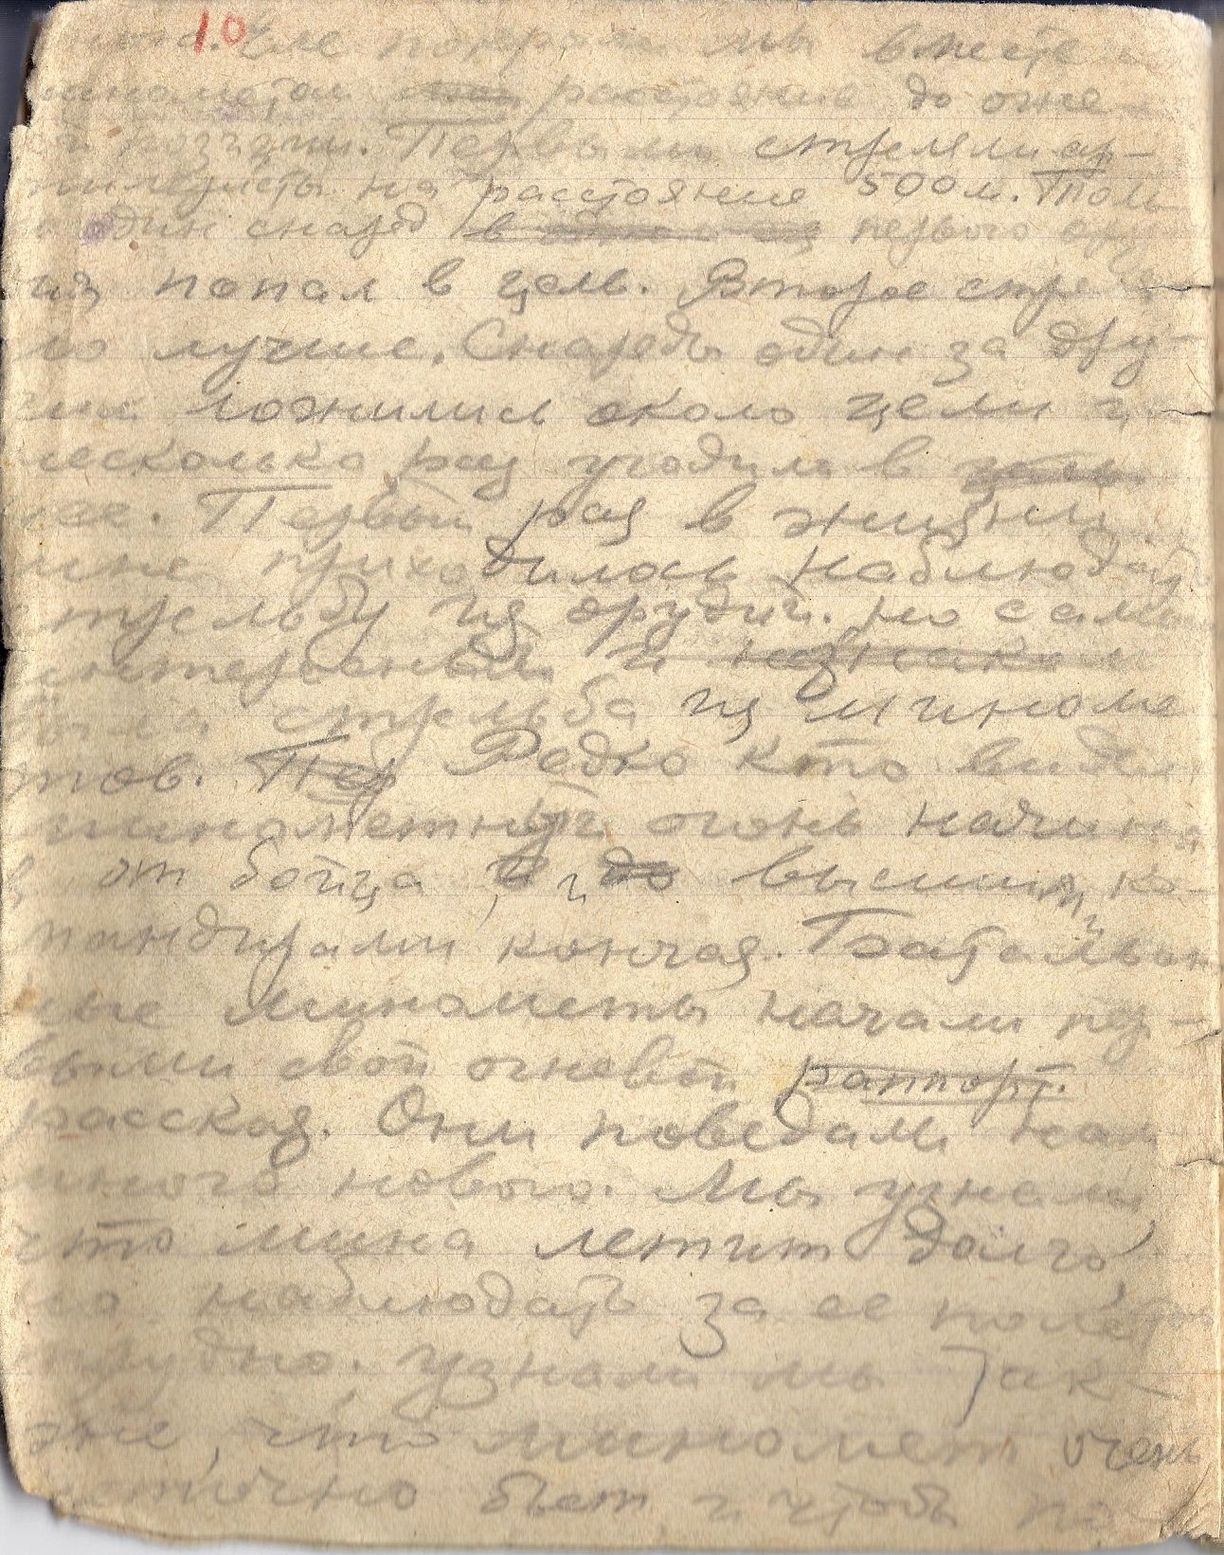 10
мы вместе
расстояние до огне-
й позиции. Первыми стреляли ар-
тиллеристы на расстояние 500 м. Толь
один снаряд первого ору
из попал в цель. Второе стре
ло лучше. Снаряды один за дру-
гим ложились около цели и
несколько раз угодили в цель
нее. Первый раз в жизни
мне приходилось наблюдать
стрельбу из орудий. Но самы
интересным и незнаком
была стрельба из миноме
тов. Пер Редко кто видел
минометный огонь начина
я от бойца, и до высшими ко-
мандирами кончая. Батальон
ные минометы начали пер-
выми свой огневой раппорт.
рассказ. Они поведали нам
много нового. Мы узнали
что мина летит долго,
но наблюдать за ее полетом
трудно. Узнали мы так-
же, что миномет очень
бьет и чтоб по